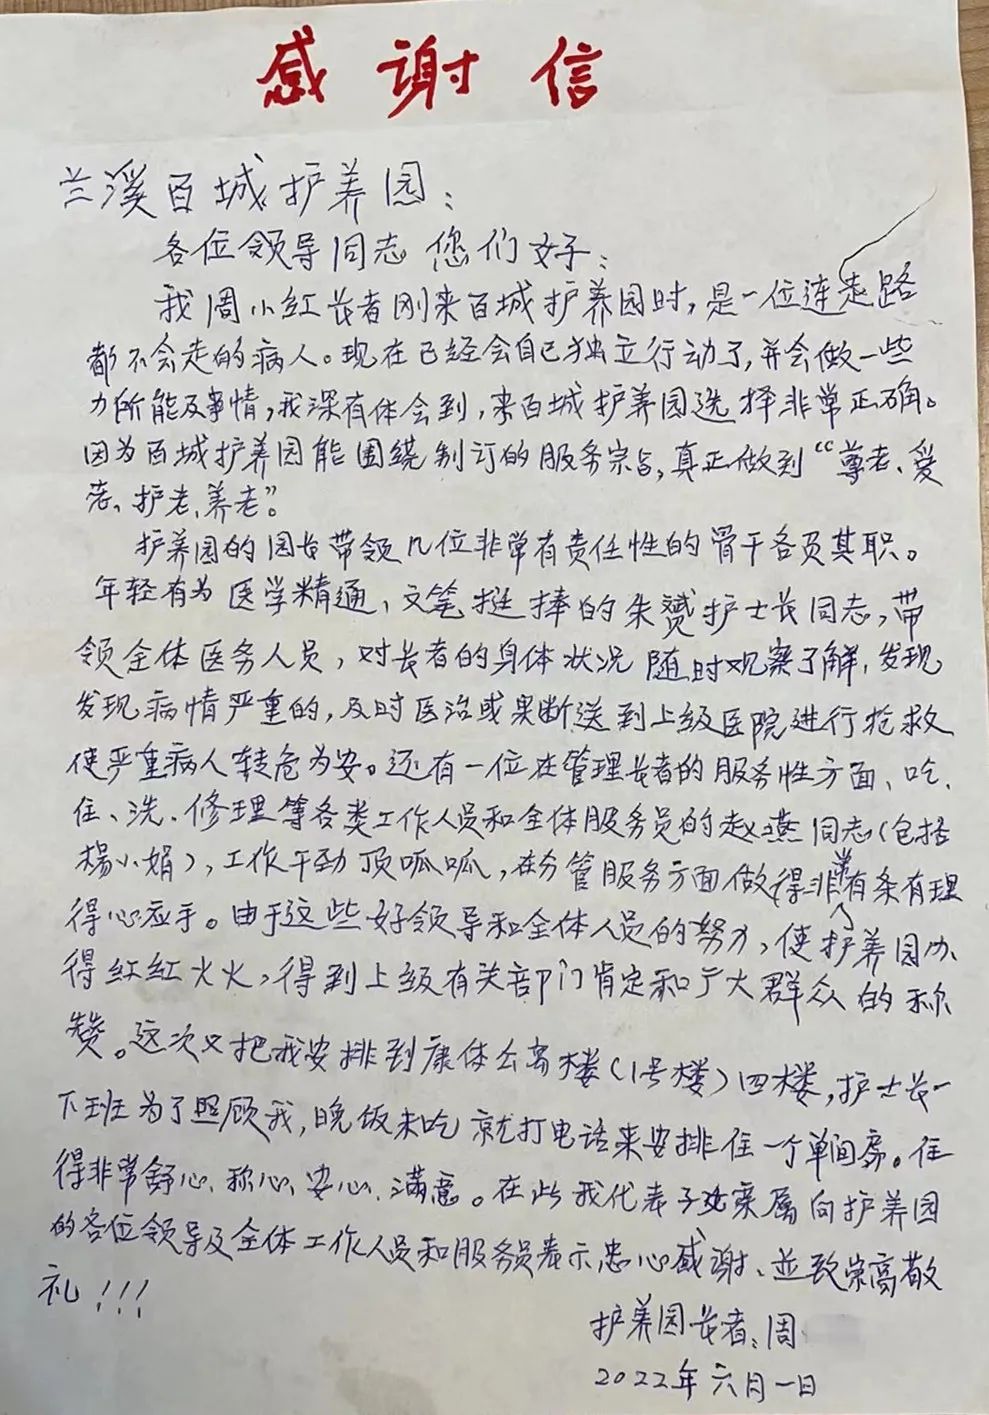 感谢信
兰溪百城护养园：
各位领导同志您们好：
我周小红长者刚来百城护养园时，是一位连走路
都不会走的病人。现在已经会自己独立行动了，并会做一些
力所能及事情，我深有体会到，来百城护养园选择非常正确。
因为百城护养园能围绕制订的服务宗旨，真正做到“尊老、爱
老、护老、养老”。
护养园的园长带领几位非常有责任性的骨干各负其职。
年轻有为医学精通，文笔挺捧的朱赟护士长同志，带
领全体医务人员，对长者的身体状况随时观察了解，发现
发现病情严重的，及时医治或果断送到上级医院进行抢救
使严重病人转危为安。还有一位在管理长者的服务性方面、吃、
住、洗、修理等各类工作人员和全体服务员的赵燕同志（包括
杨小娟），工作干劲顶呱呱，在分管服务方面做得非常有条有理
得心应手。由于这些好领导和全体人员的努力，使护养园办
得红红火火，得到上级有关部门肯定和广大群众的称
赞。这次又把我安排到康体公寓楼（1号楼）四楼，护士长一
下班为了照顾我，晚饭未吃就打电话来安排住一个单间房。住
得非常舒心、称心、安心、满意。在此我代表子女家属向护养园
的各位领导及全体工作人员和服务员表示忠心感谢、並致崇高敬
礼！！！
护养园长者：周
2022年六月一日